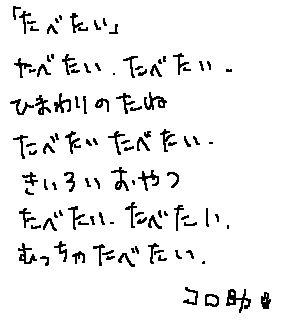 「たべたい」
たべたい、たべたい、
ひまわりのたね
たべたいたべたい、
きいろいおやつ
たべたい、たべたい、
むっちゃたべたい、
コロ助